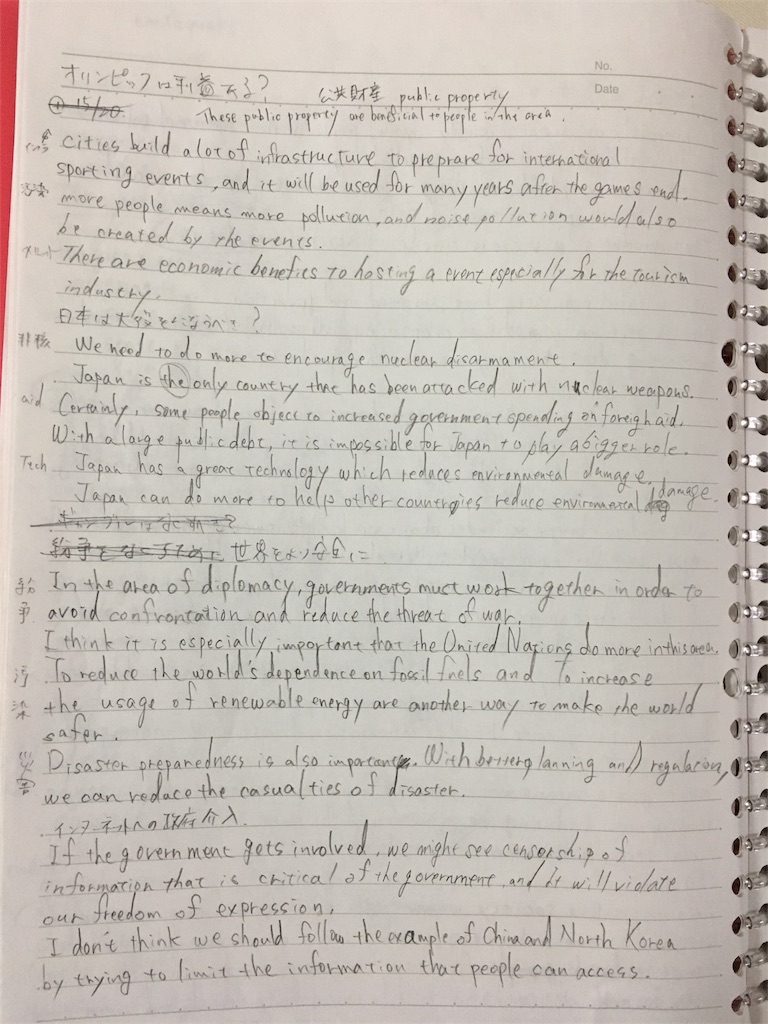 No.
オリンピックは利益ある?
公共財産 public property
Date
15/20
These public property are beneficial to people in the area.
インフラ cities build a lot of infrastructure to preprare for international
sporting events, and it will be used for many years after the games end.
汚染 more people means more pollution, and noise pollution would also
be created by the events.
メリット There are economic benefits to hosting a event especially for the tourism
industry.
日本は大役をになうべき?
非核 We need to do more to encourage nuclear disarmament.
Japan is the only country that has been attacked with nuclear weapons.
aid Certainly, some people object to increased government spending on foreign aid.
With a large public debt, it is impossible for Japan to play a bigger role.
Tech Japan has a great technology which reduces environmental damage.
Japan can do more to help other countries reduce environmental damage.
世界をより安全に
紛争 In the area of diplomacy, governments must work together in order to
avoid confrontation and reduce the threat of war.
I think it is especially important that the United Nations do more in this area.
汚染 To reduce the world's dependence on fossil fuels and to increase
the usage of renewable energy are another way to make the world
safer.
災害 Disaster preparedness is also important. With better planning and regulation,
we can reduce the casualties of disaster.
インターネットへの政府介入.
If the government gets involved, we might see censorship of
information that is critical of the government, and it will violate
our freedom of expression,
I don't think we should follow the example of China and North Korea
by trying to limit the information that people can access.